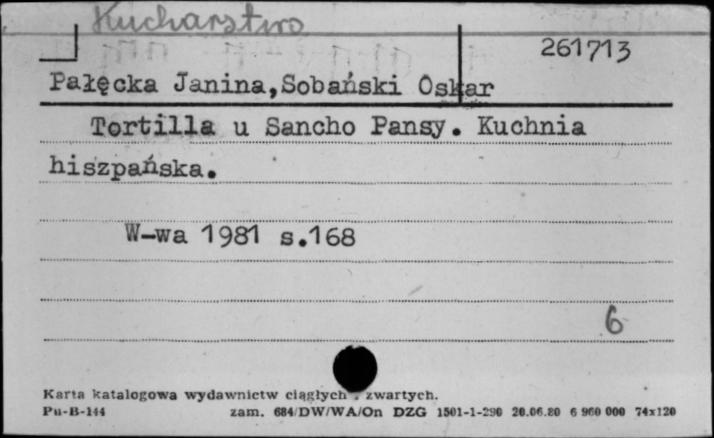 Kucharstwo
261713
Pałęcka Janina,Sobański Oskar
Tortilla u Sancho Pansy. Kuchnia
hiszpańska.
W-wa 1981 s.168
6
Karta katalogowa wydawnictw ciągłych i zwartych.
Pu-B-144 zam. 684/DW/WA/On DZG 1501-1-290 20.06.80 6 960 000 74x120